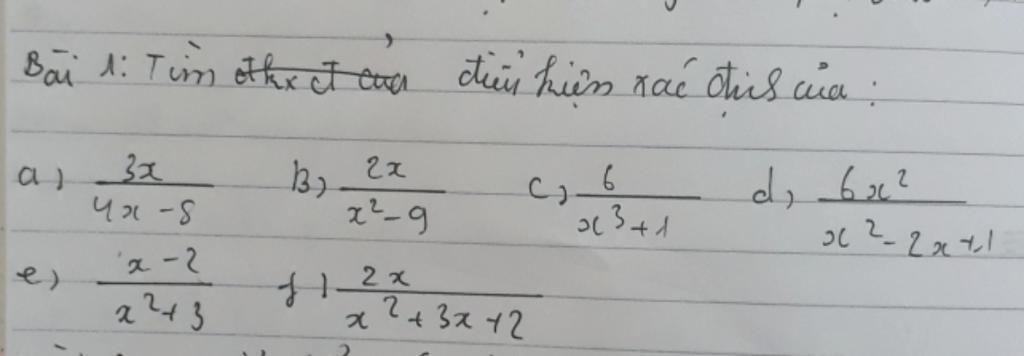 Bài 1: Tìm đkxđ của điều kiện xác định của:
a) \frac{3x}{4x-8} B) \frac{2x}{x^2-9} c) \frac{6}{x^3+1} d) \frac{6x^2}{x^2-2x+1}
e) \frac{x-2}{x^2+3} f) \frac{2x}{x^2+3x+2}